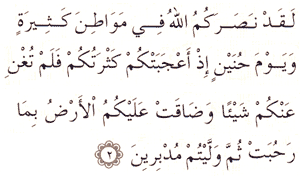 لَقَدْ نَصَرَكُمُ اللَّهُ فِي مَوَاطِنَ كَثِيرَةٍ
وَيَوْمَ حُنَيْنٍ إِذْ أَعْجَبَتْكُمْ كَثْرَتُكُمْ فَلَمْ تُغْنِ
عَنْكُمْ شَيْئًا وَضَاقَتْ عَلَيْكُمُ الْأَرْضُ بِمَا
رَحُبَتْ ثُمَّ وَلَّيْتُمْ مُدْبِرِينَ ٢